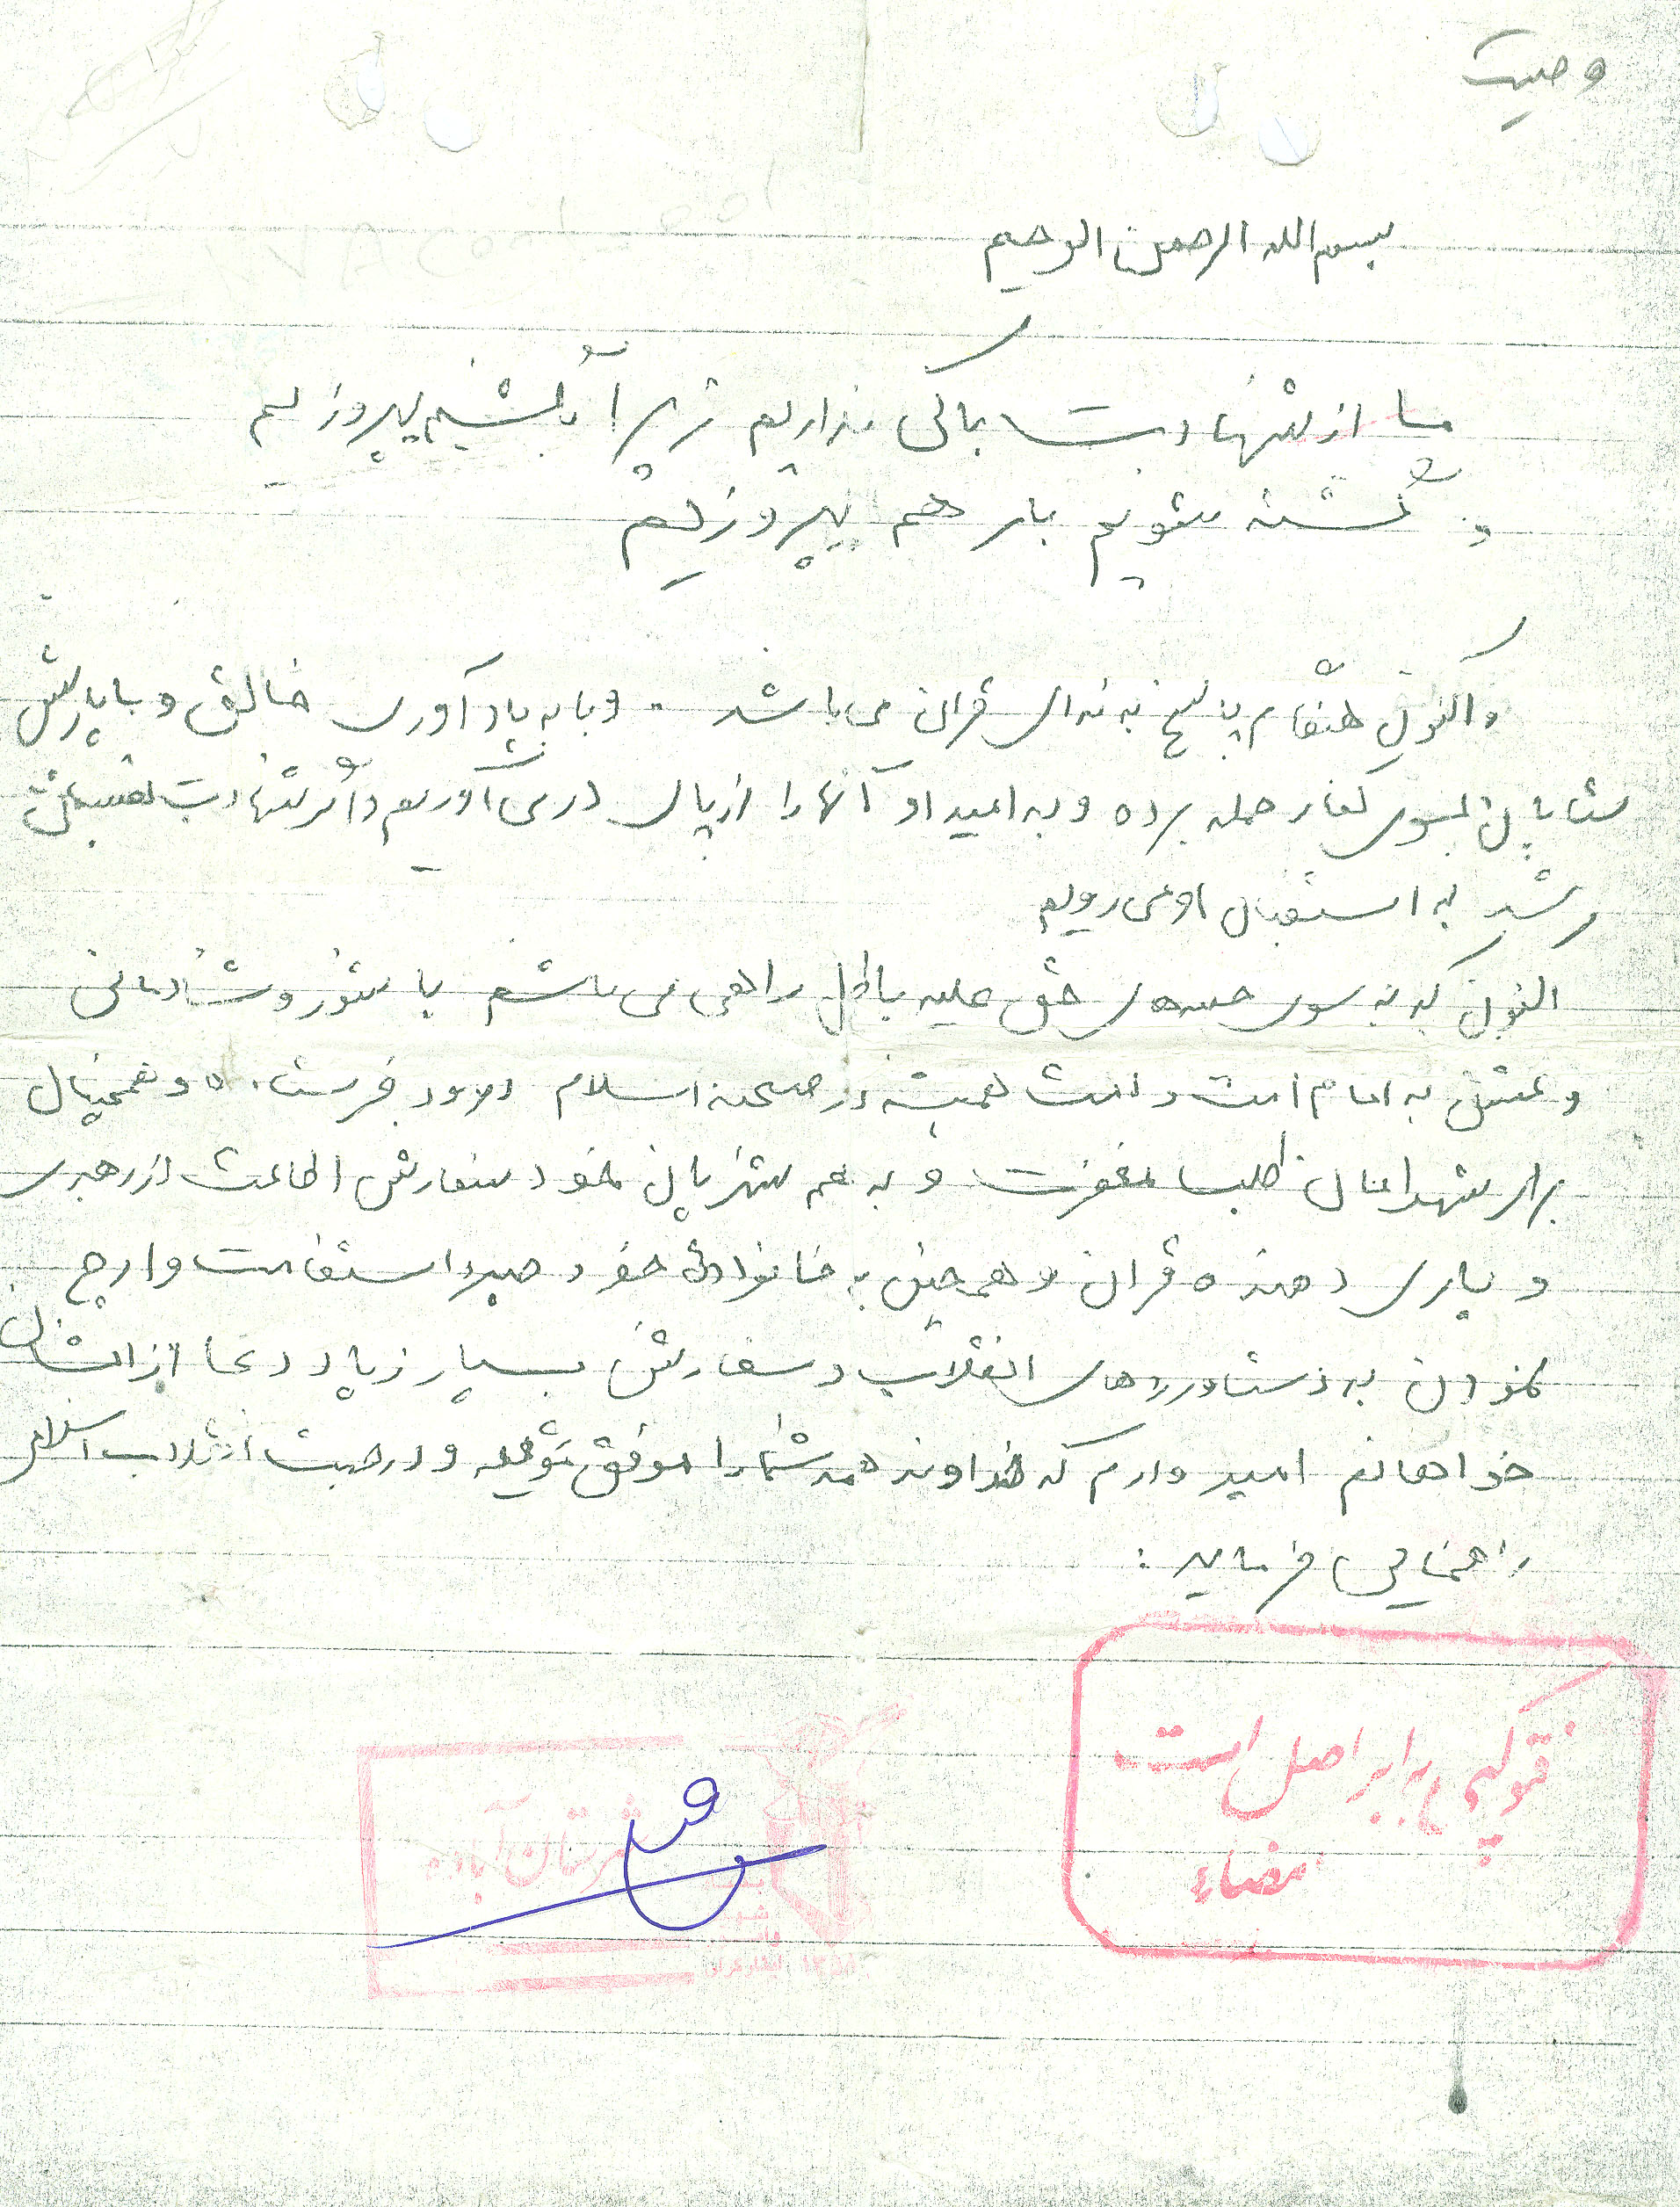 وصیت
بسم الله الرحمن الرحیم
ما از شهادت باکی نداریم زیرا بکشیم پیروزیم
و کشته شویم باز هم پیروزیم
و اکنون هنگام پاسخ به ندای قرآن می باشد . و با به یاد آوری خالق و با یارش
شتابان بسوی کفار حمله برده و به امید او آنها را از پای در می آوریم و اگر شهادت نصیبمان
شد به استقبال او می رویم
اکنون که به سوی جبهه ی حق علیه باطل راهی می باشم با شور و شادمانی
و عشق به امام امت و امت همیشه در صحنه اسلام درود فرستاده و همچنان
برای شهدامان طلب مغفرت و به هم شهریان خود سفارش اطاعت از رهبری
و یاری دهنده قرآن و همچنین به خانواده خود صبر و استقامت و ارج
نمودن به دستاوردهای انقلاب و سفارش بسیار زیاد دعا از ایشان
خواهانم امید وارم که خداوند همه شما را موفق و در جهت انقلاب اسلامی
راهنمایی فرماید :
فتوکپی برابر اصل است
امضاء
شهرستان آباده